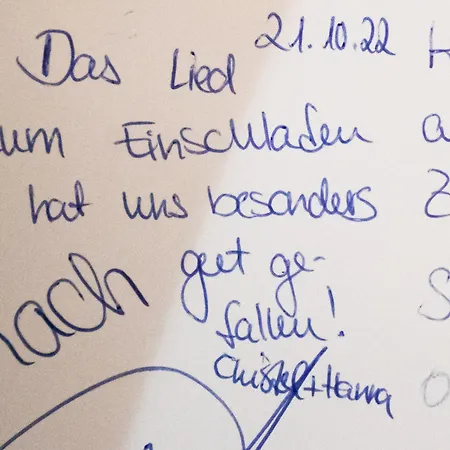 21.10.22
Das Lied
zum Einschlafen
hat uns besonders
gut ge-
fallen!
Christel + Hanna